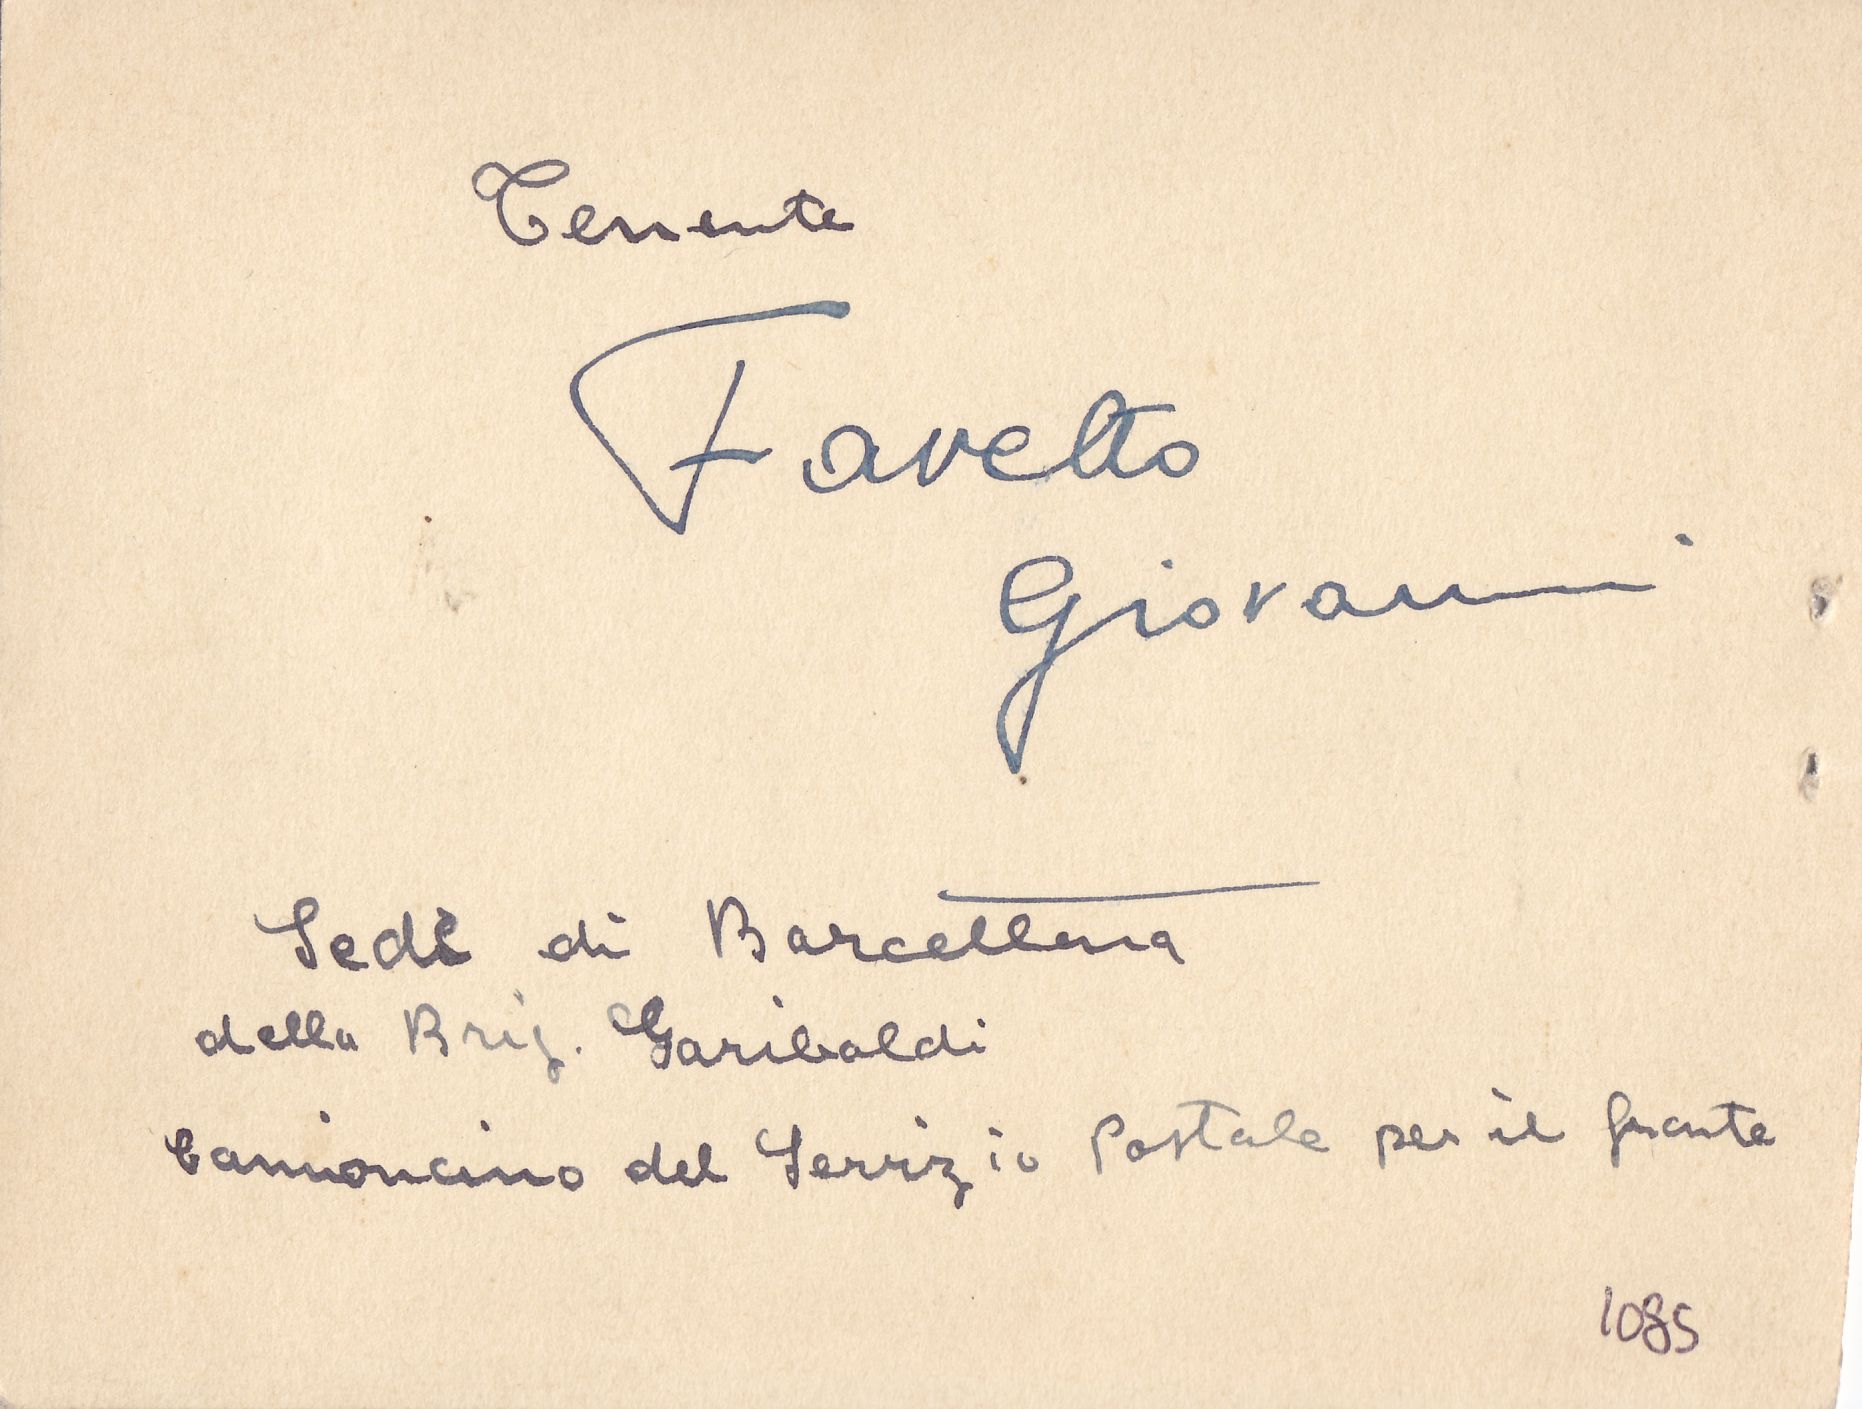 Tenente
Favetto
Giovanni
Sede di Barcellona
della Brig. Garibaldi
Camioncino del Servizio Postale per il fronte
1085